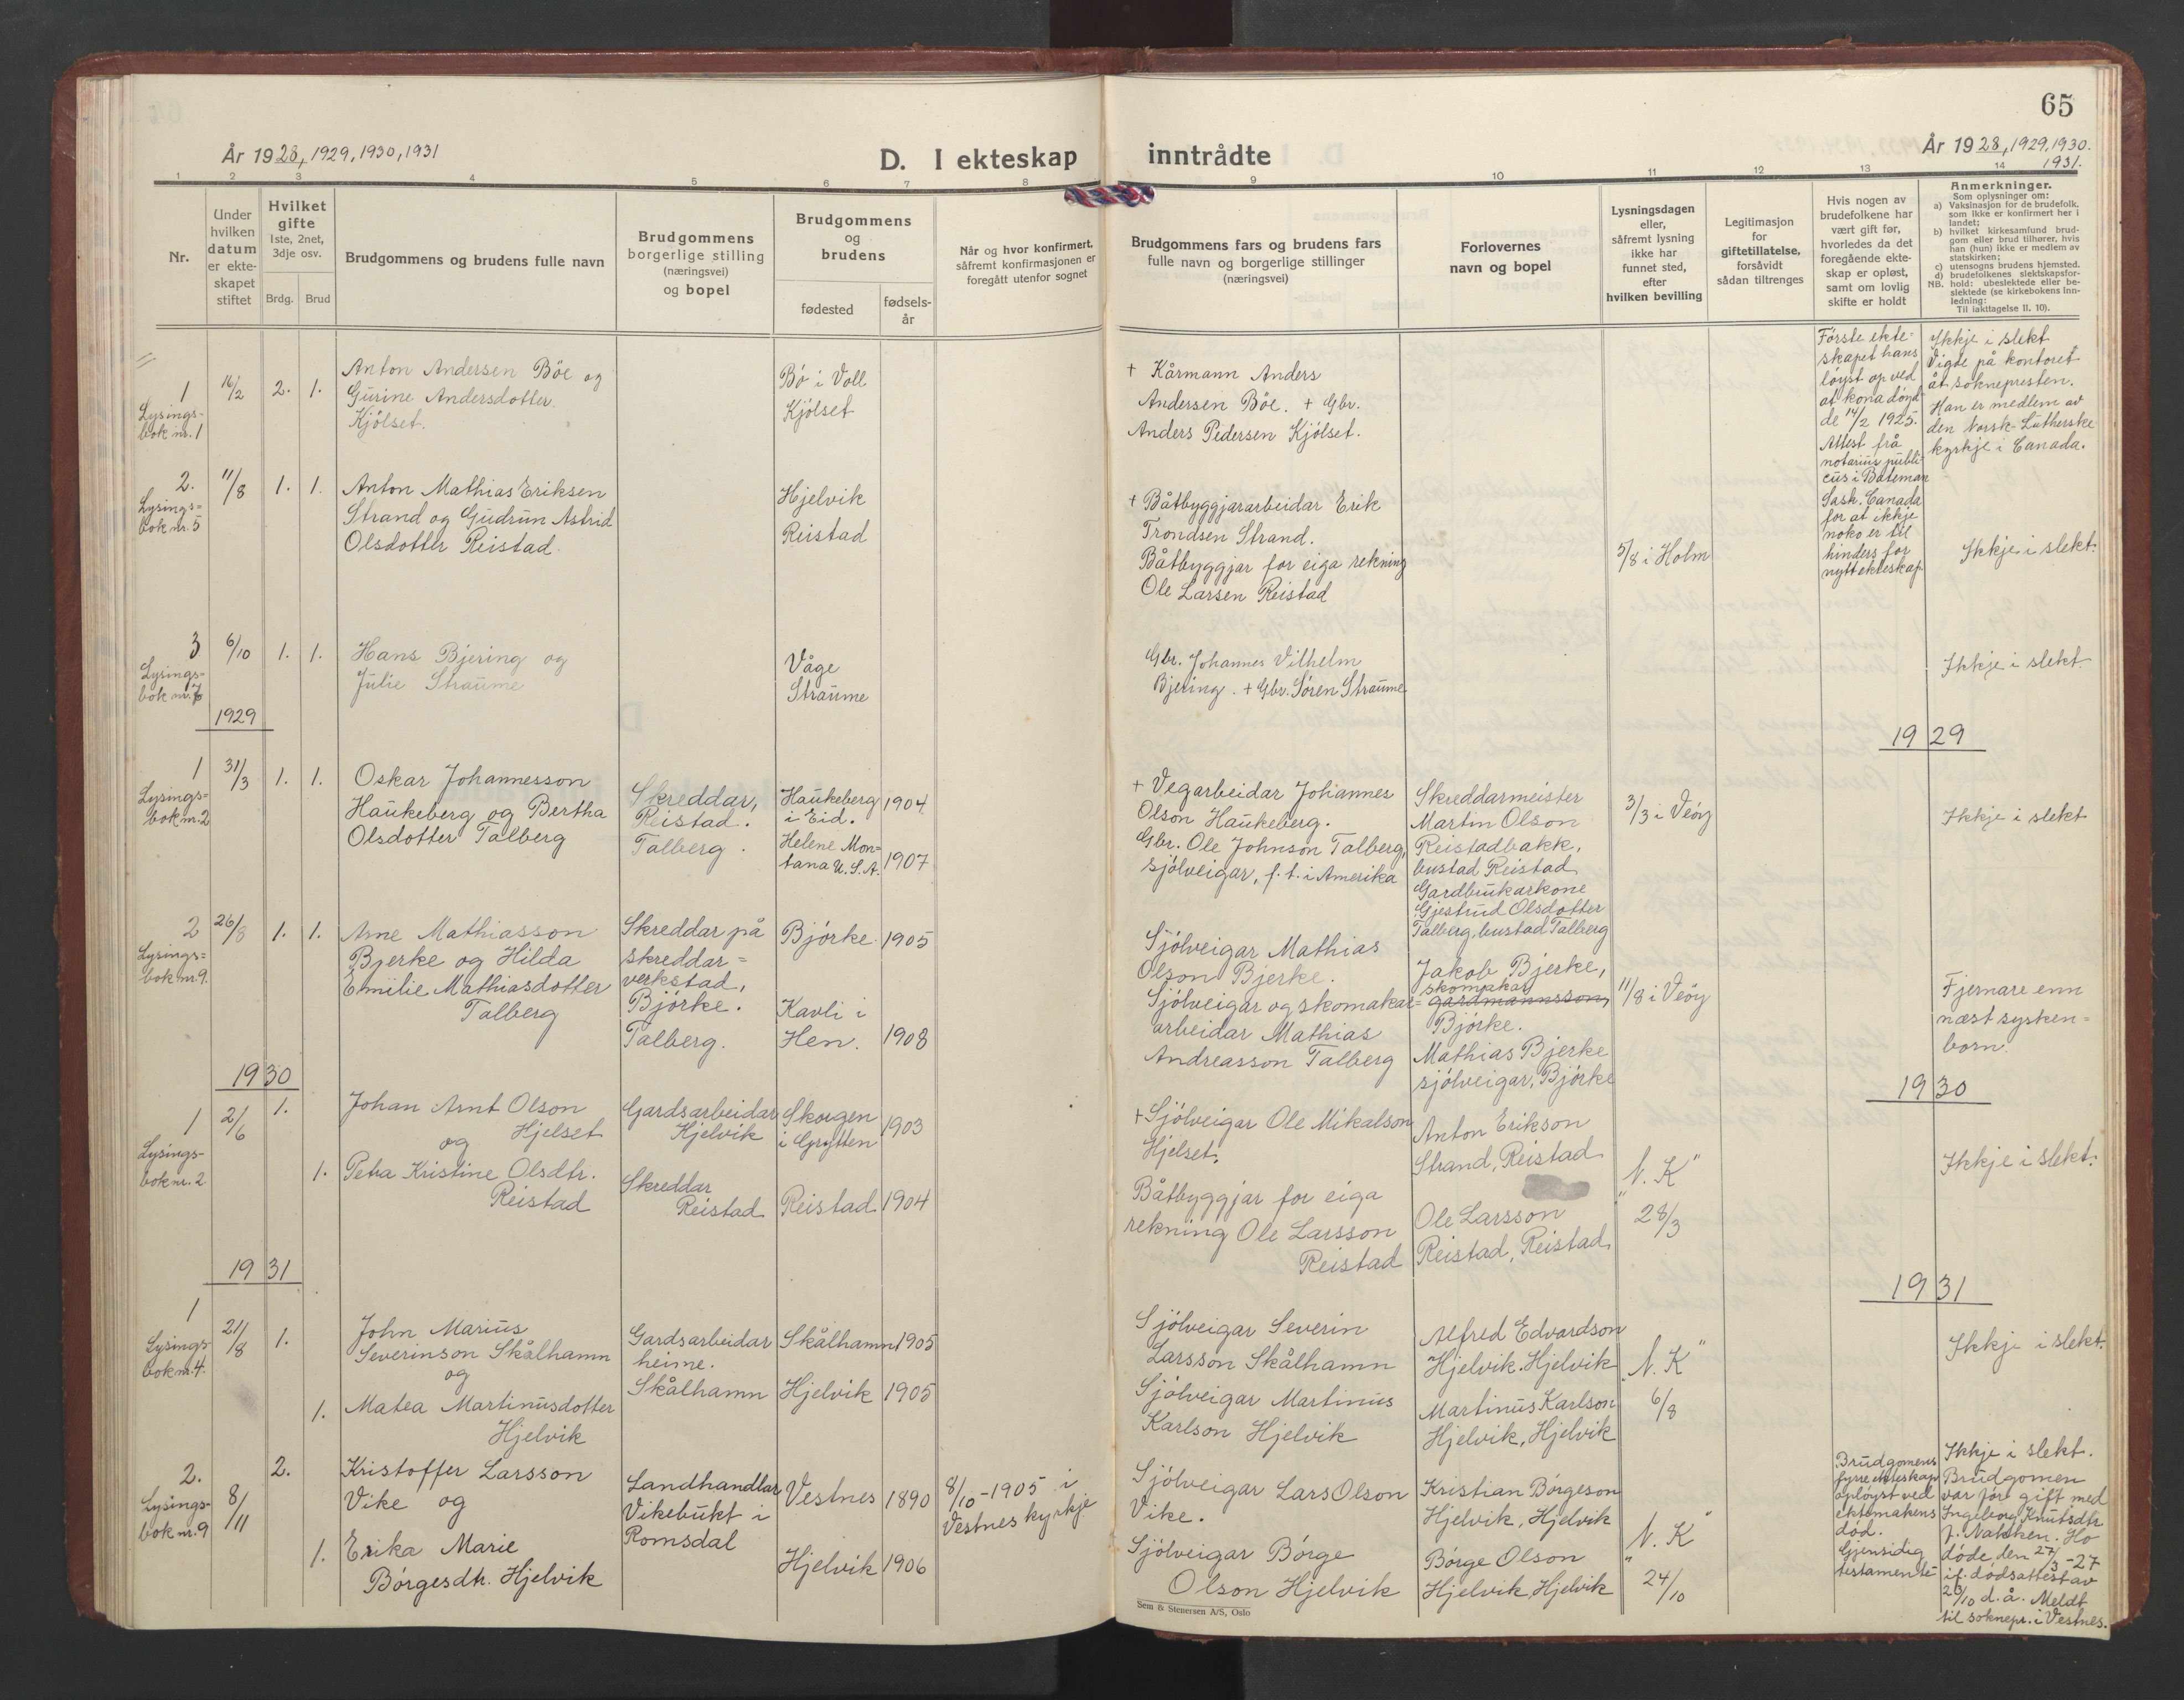 65
År 1928, 1929, 1930, 1931
D. I ekteskap inntrådte
År 1928, 1929, 1930.
1931.
1 2 3 4 5 6 7 8 9 10 11 12 13 14
Nr.
Under hvilken datum er ekteskapet stiftet
Hvilket gifte
1ste, 2net, 3dje osv.
Brdg. Brud
Brudgommens og brudens fulle navn
Brudgommens borgerlige stilling (næringsvei) og bopel
Brudgommens og brudens
fødested
fødselsår
Når og hvor konfirmert, såfremt konfirmasjonen er foregått utenfor sognet
Brudgommens fars og brudens fars fulle navn og borgerlige stillinger (næringsvei)
Forlovernes navn og bopel
Lysningsdagen eller, såfremt lysning ikke har funnet sted, efter hvilken bevilling
Legitimasjon for giftetillatelse, forsåvidt sådan tiltrenges
Hvis nogen av brudefolkene har vært gift før, hvorledes da det foregående ekteskap er opløst, samt om lovlig skifte er holdt
Anmerkninger.
Som oplysninger om:
a) Vaksinasjon for de brudefolk, som ikke er konfirmert her i landet;
b) hvilket kirkesamfund brudgom eller brud tilhører, hvis han (hun) ikke er medlem av statskirken;
c) utensogns brudens hjemsted.
d) brudefolkenes slektskapsforhold: ubeslektede eller beslektede (se kirkebokens innledning:
NB. Til iakttagelse II. 10).
1
Lysings-
bok nr. 1
16/2
2. 1.
Anton Andersen Böe og
Gurine Andersdotter
Kjölset.
Bö i Voll
Kjölset
+ Kårmann Anders
Andersen Böe. + Gbr.
Anders Pedersen Kjölset.
Förste ekte-
skapet hans
löyst op ved
at kona döyd-
de 14/2 1925.
Attest frå
notarius publi-
cus i Bateman
Sask. Canada
for at ikkje
noko er til
hinders for
nytt ekteskap
Ikkje i slekt
Vigde på kontoret
åt soknepresten.
Han er medlem av
den Norsk-Lutherske
kyrkje i Canada.
2.
Lysings=
bok nr. 5
11/8
1. 1.
Anton Mathias Eriksen
Strand og Gudrun Astrid
Olsdotter Reistad.
Hjelvik
Reistad
+ Båtbyggjararbeidar Erik
Trondsen Strand.
Båtbyggjar for eiga rekning
Ole Larsen Reistad
5/8 i Holm
Ikkje i slekt.
3
Lysings-
bok nr. 7
6/10
1. 1.
Hans Bjering og
Julie Straume
Våge
Straume
Gbr. Johannes Vilhelm
Bjering. + Gbr. Sören Straume
Ikkje i slekt
1929
1929
1
Lysings=
bok nr. 2
31/3
1. 1.
Oskar Johannesson
Haukeberg og Bertha
Olsdotter Talberg
Skreddar,
Reistad.
Talberg.
Haukeberg
i Eid.
1904
Helene Mon=
tana U.S.A.
1907
+ Vegarbeidar Johannes
Olson Haukeberg.
Gbr. Ole Johnson Talberg,
sjölveigar, f. t. i Amerika
Skreddarmeister
Martin Olson
Reistadbakk,
bustad Reistad
Gardbrukarkone
Gjestrud Olsdotter
Talberg, bustad Talberg
3/3 i Veöy
Ikkje i slekt
2
Lysings=
bok nr. 9.
26/8
1. 1.
Arne Mathiasson
Bjerke og Hilda
Emilie Mathiasdotter
Talberg
Skreddar på
skreddar=
verkstad,
Björke.
Talberg.
Björke. 1905
Kavli i
Hen. 1908
Sjölveigar Mathias
Olson Bjerke.
Sjölveigar og skomakar=
arbeidar Mathias
Andreasson Talberg
Jakob Bjerke,
skomakar
gardmannsson,
Björke.
Mathias Bjerke
sjölveigar, Björke
11/8 i Veöy
Fjernare enn
næst sysken=
born.
1930
1930
1
Lysings-
bok nr. 2
2/6
1.
1.
Johan Arnt Olson
og Hjelset
Petra Kristine Olsdtr.
Reistad
Gardsarbeidar
Hjelvik
Skreddar
Reistad
Skorgen
i Grytten
1903
Reistad 1904
+ Sjölveigar Ole Mikalson
Hjelset.
Båtbyggjar for eiga
rekning Ole Larsson
Reistad
Anton Erikson
Strand, Reistad
Ole Larsson
Reistad, Reistad
"N. K"
28/3
Ikkje i slekt.
1931
1931
1
Lysings-
bok nr. 4.
21/8
1.
1.
John Marius
Severinson Skålhamn
og
Matea Martinusdotter
Hjelvik
Gardsarbeidar
heime.
Skålhamn
Skålhamn 1905
Hjelvik 1905
Sjölveigar Severin
Larsson Skålhamn
Sjölveigar Martinus
Karlson Hjelvik
Alfred Edvardson
Hjelvik. Hjelvik
Martinus Karlson
Hjelvik, Hjelvik
"N. K"
6/8
Ikkje i slekt.
2.
Lysings-
bok nr. 9
8/11
2.
1.
Kristoffer Larsson
Vike og
Erika Marie
Börgesdtr. Hjelvik
Landhandlar
Vikebukt i
Romsdal
Vestnes 1890
Hjelvik 1906
8/10-1905 i
Vestnes kyrkje
Sjölveigar Lars Olson
Vike.
Sjölveigar Börge
Olson Hjelvik
Kristian Börgeson
Hjelvik, Hjelvik
Börge Olson
Hjelvik, Hjelvik
"N. K"
24/10
Brudgomens
fyrre ekteskap
oplöyst ved
ektemakens
död.
Gjensidig
testamente
Ikkje i slekt.
Brudgomen
var för gift med
Ingeborg Knutsdtr
f. Nakken. Ho
döde den 27/3-27
if. dödsattest av
26/10 d. å. Meldt
til soknepr. i Vestnes.
Sem & Stenersen A/S, Oslo